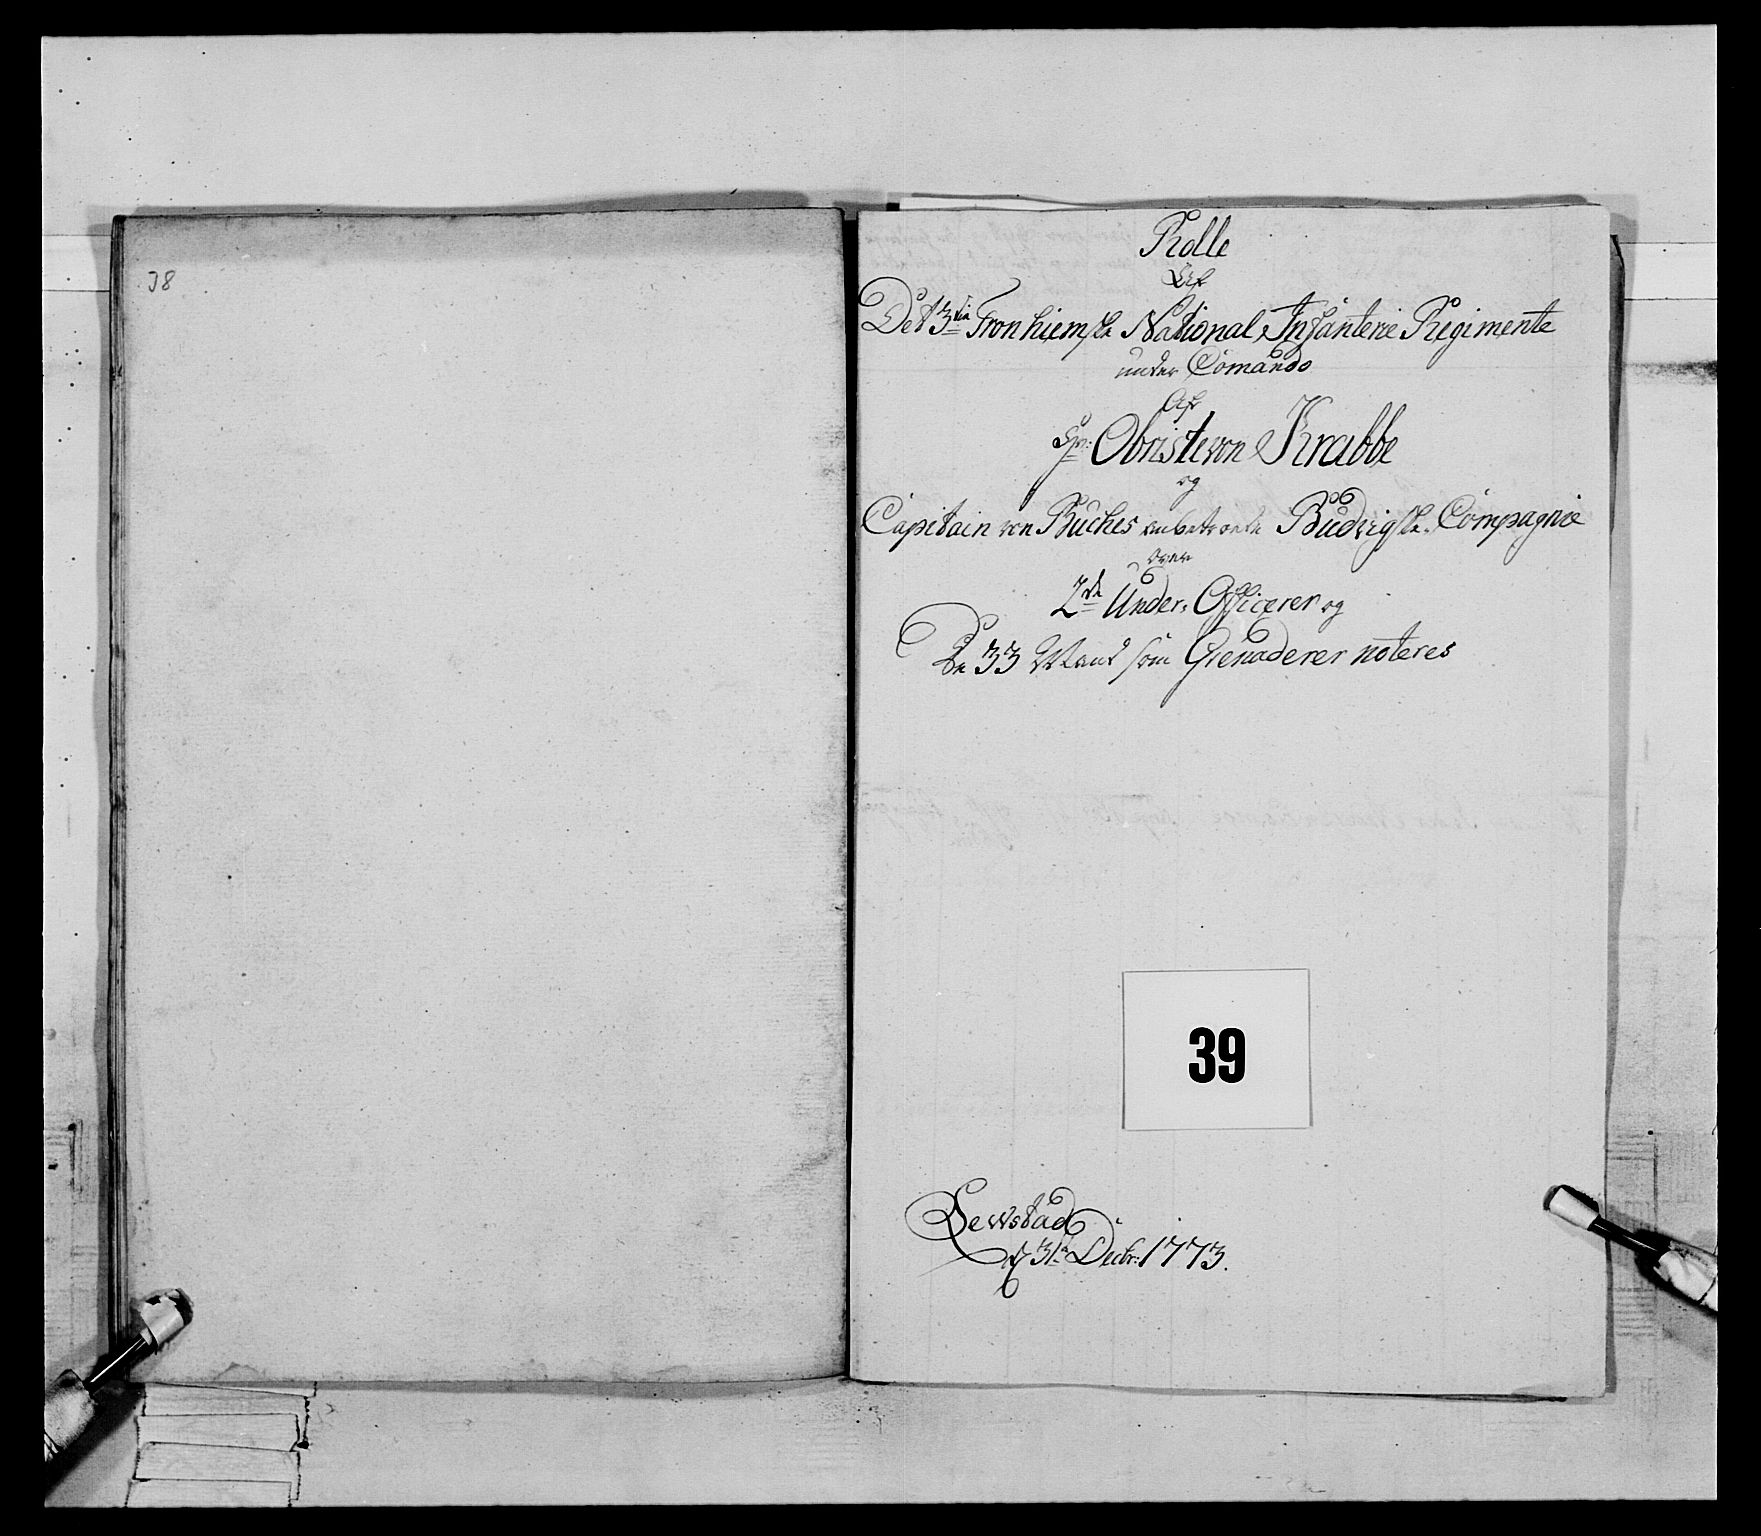 38
Rolle
Af
Det 3die Tronhiemske National Infanterie Regimente
under Comando
Af
Hr: Obriste von Krabbe
og
Capitain von Büches anbetroede Büdvigske Compagnie
over
2de Under-Officerer og
De 33 Mand som Grenaderer noteres
39
Lewstad
d 31te Decbr: 1773.